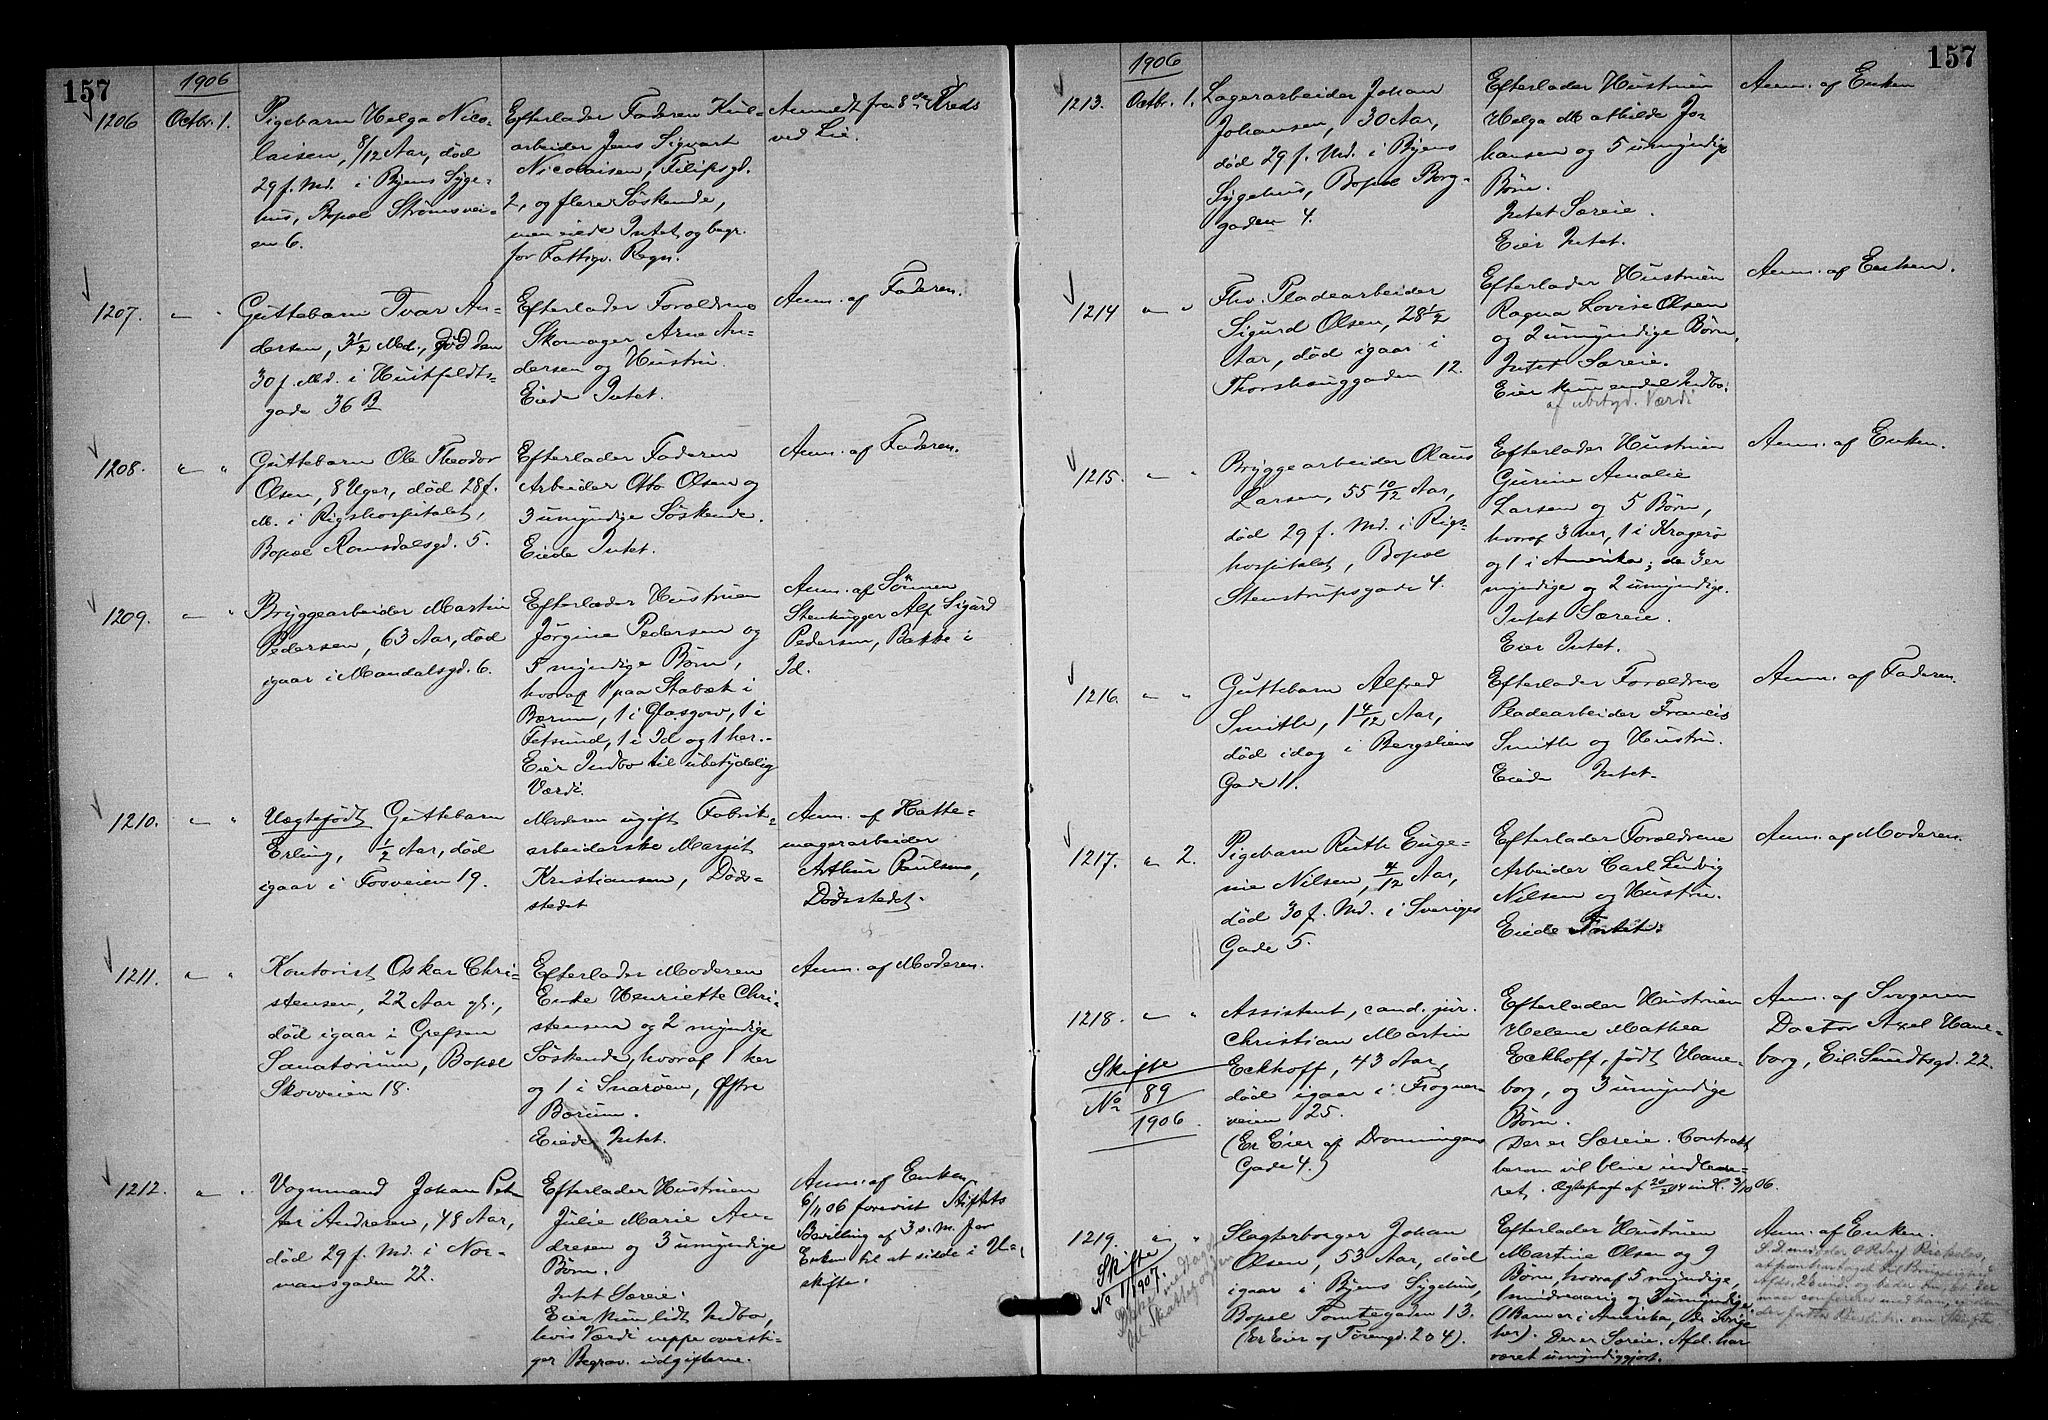 157
1906
1206 Octbr. 1. Pigebarn Helga Nico-
laisen, 8/12 Aar, død
29 f. Md. i Byens Syge-
hus, Bopæl Strømsvei-
en 6.
Efterlader Faderen Kul-
arbeider Jens Sigvart
Nicolaisen, Filipsgd.
2, og flere Søskende,
men eiede Intet og begr.
for Fattigv. Regn.
Anmeldt fra 8de Kreds
ved Lie.
1207. " " Guttebarn Ivar An-
dersen, 3 1/2 Md., død den
30 f. Md. i Huitfeldts-
gade 36 B
Efterlader Forældrene
Skomager Arne An-
dersen og Hustru.
Eiede Intet.
Anm. af Faderen.
1208. " " Guttebarn Ole Theodor
Olsen, 8 Uger, død 28 f.
M. i Rigshospitalet,
Bopæl Romsdalsgd. 5.
Efterlader Faderen
Arbeider Otto Olsen og
3 umyndige Søskende.
Eiede Intet.
Anm. af Faderen.
1209. " " Bryggearbeider Martin
Pedersen, 63 Aar, død
igaar i Mandalsgd. 6.
Efterlader Hustruen
Jørgine Pedersen og
5 myndige Børn,
hvoraf 1 paa Stabæk i
Bærum, 1 i Glasgow, 1 i
Fetsund, 1 i Id og 1 her.
Eier Indbo til ubetydelig
Værdi.
Anm. af Sønnen
Stenhugger Alf Sigurd
Pedersen, Bakke i
Id.
1210. " " Uægtefødt Guttebarn
Erling, 1/2 Aar, død
igaar i Fosveien 19.
Moderen ugift Fabrik-
arbeiderske Margit
Kristiansen, Døds-
stedet
Anm. af Hatte-
magerarbeider
Arthur Paulsen,
Dødsstedet.
1211. " " Kontorist Oskar Chri-
stensen, 22 Aar gl.,
død igaar i Grefsen
Sanatorium, Bopæl
Skovveien 18.
Efterlader Moderen
Enke Henriette Chri-
stensen og 2 myndige
Søskende, hvoraf 1 her
og 1 i Snarøen, Østre
Bærum.
Eiede Intet.
Anm. af Moderen.
1212. " " Vognmand Johan Pet-
ter Andresen, 48 Aar,
død 29 f. Md. i Nor-
mansgaden 22.
Efterlader Hustruen
Julie Marie An-
dresen og 3 umyndige
Børn.
Intet Særeie.
Eier kun lidt Indbo,
hvis Værdi neppe oversti-
ger Begrav. udgifterne.
Anm. af Enken
6/11 06 forevist Stiftets
Bevilling af 3 s. M. for
Enken til at sidde i U-
skifte.
157
1906
1213. Octbr. 1. Lagerarbeider Johan
Johansen, 30 Aar,
død 29 f. Md. i Byens
Sygehus, Bopæl Borg-
gaden 4.
Efterlader Hustruen
Helga Mathilde Jo
hansen og 5 umyndige
Børn.
Intet Særeie.
Eier Intet.
Anm. af Enken
1214 " " Fhv. Pladearbeider
Sigurd Olsen, 28 1/2
Aar, død igaar i
Thorshauggaden 12.
Efterlader Hustruen
Ragna Lovise Olsen
og 2 umyndige Børn,
Intet Særeie.
Eier kun endel Indbo.
af ubetyd. Værdi
Anm. af Enken.
1215. " " Bryggearbeider Olaus
Larsen, 55 10/12 Aar,
død 29 f. Md. i Rigs-
hospitalet, Bopæl
Stenstrupsgade 4.
Efterlader Hustruen
Gurine Amalie
Larsen og 5 Børn,
hvoraf 3 her, 1 i Kragerø
og 1 i Amerika; de 3 er
myndige og 2 umyndige.
Intet Særeie.
Eier Intet.
Anm. af Enken.
1216. " " Guttebarn Alfred
Smith, 1 4/12 Aar,
død idag i Bergsliens
Gade 11.
Efterlader Forældrene
Pladearbeider Francis
Smith og Hustru.
Eiede Intet.
Anm. af Faderen.
1217. " 2. Pigebarn Ruth Euge-
nie Nilsen, 4/12 Aar,
død 30 f. Md. i Sveriges
Gade 5.
Efterlader Forældrene
Arbeider Carl Ludvig
Nilsen og Hustru.
Eiede Intet.
Anm. af Moderen.
1218. " " Assistent, cand. jur.
Christian Martin
Eckhoff, 43 Aar,
død igaar i Frogner-
veien 25.
(Er Eier af Dronningens
Gade 4.)
Skifte
No 89
1906
Efterlader Hustruen
Helene Mathea
Eckhoff, født Hane-
borg, og 3 umyndige
Børn.
(Der er Særeie. Contrakt
herom vil blive indleve-
ret. Ægtepagt af 20/2 04 indl. 3/10 06.
Anm. af Svogeren
Doctor Axel Hane-
borg, Eil. Sundtsgd. 22.
1219. " " Slagterborger Johan
Olsen, 53 Aar, død
igaar i Byens Sygehus,
Bopæl Tomtegaden 13.
(Er Eier af Torvgd. 20 4).
Skifte
No 1/1907.
Efterlader Hustruen
Martine Olsen og 9
Børn, hvoraf 5 myndige,
1 mindreaarig og 3 umyndige
(1 Barn er i Amerika, De Øvrige
her). Der er Særeie. Afd. har
været umyndiggjort.
Anm. af Enken.